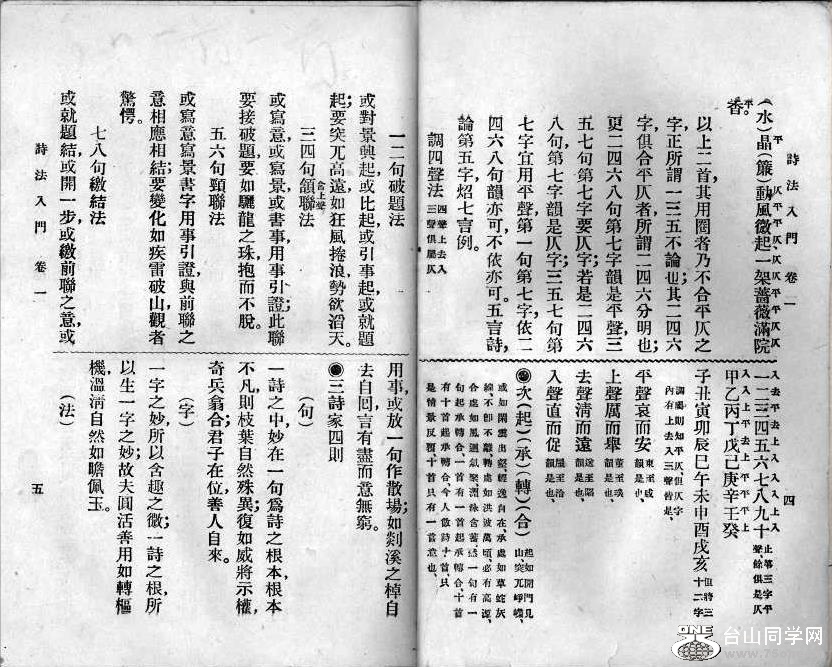 詩法入門 卷一
四
(水)晶(簾)動風微起一架薔薇滿院
香。
以上二首其用圈者乃不合平仄之
字正所謂一三五不論也;其二四六
字俱合平仄者,所謂二四六分明也;
更二四六八句第七字韻是平聲三
五七句第七字要仄字;若是二四六
八句第七字韻是仄字;三五七句第
七字宜用平聲第一句第七字,依二
四六八句韻亦可,不依亦可。五言詩,
論第五字,炤七言例。
調四聲法 四聲上去入三聲俱屬仄
一二三四五六七八九十 止等三字平聲,餘俱是仄
甲乙丙丁戊己庚辛壬癸
子丑寅卯辰巳午未申酉戌亥 但將三十二字
調熟則知平仄,但仄字內有上去入三聲皆是、
平聲哀而安 東至咸韻是也、
上聲厲而舉 董至
去聲清而遠
入聲直而促 屋至洽韻是也、
●次(起)(承)(轉)(合) 起如開門見山突兀崢嶸、
或如閑雲出壑輕逸自在、承處如草蛇灰
線不即不離、轉處如洪波萬頃必有高源、
合處如風迴氣聚淵泳含蓄 一句有一
句起承轉合一首有一首起承轉合十首
有十首起承轉合今人做詩十首只
是情景反覆十首只有一首意也、
一二句破題法
或對景興起或比起或引事起或就題
起;要突兀高遠如狂風捲浪勢欲滔天。
三四句頷聯法
或寫意或寫景或書事用引證;此聯
要接破題要如驪龍之珠抱而不脫。
五六句頸聯法
或寫意寫景書字用事引證與前聯之
意相應相結;要變化如疾雷破山觀者
驚愕。
七八句繳結法
或就題結或開一步或繳前聯之意或
詩法入門 卷一
五
用事或放一句作散場;如剡溪之棹自
去自回言有盡而意無窮。
●三詩家四則
(句)
一詩之中,妙在一句為詩之根本根本
不凡則枝葉自然殊異;復如威將示權,
奇兵翕合;君子在位,善人自來。
(字)
一字之妙,所以含趣之微;一詩之根,所
以生一字之妙;故夫圓活善用如轉樞
機,溫淸自然如瞻佩玉。
(法)
ONE
台山同学网